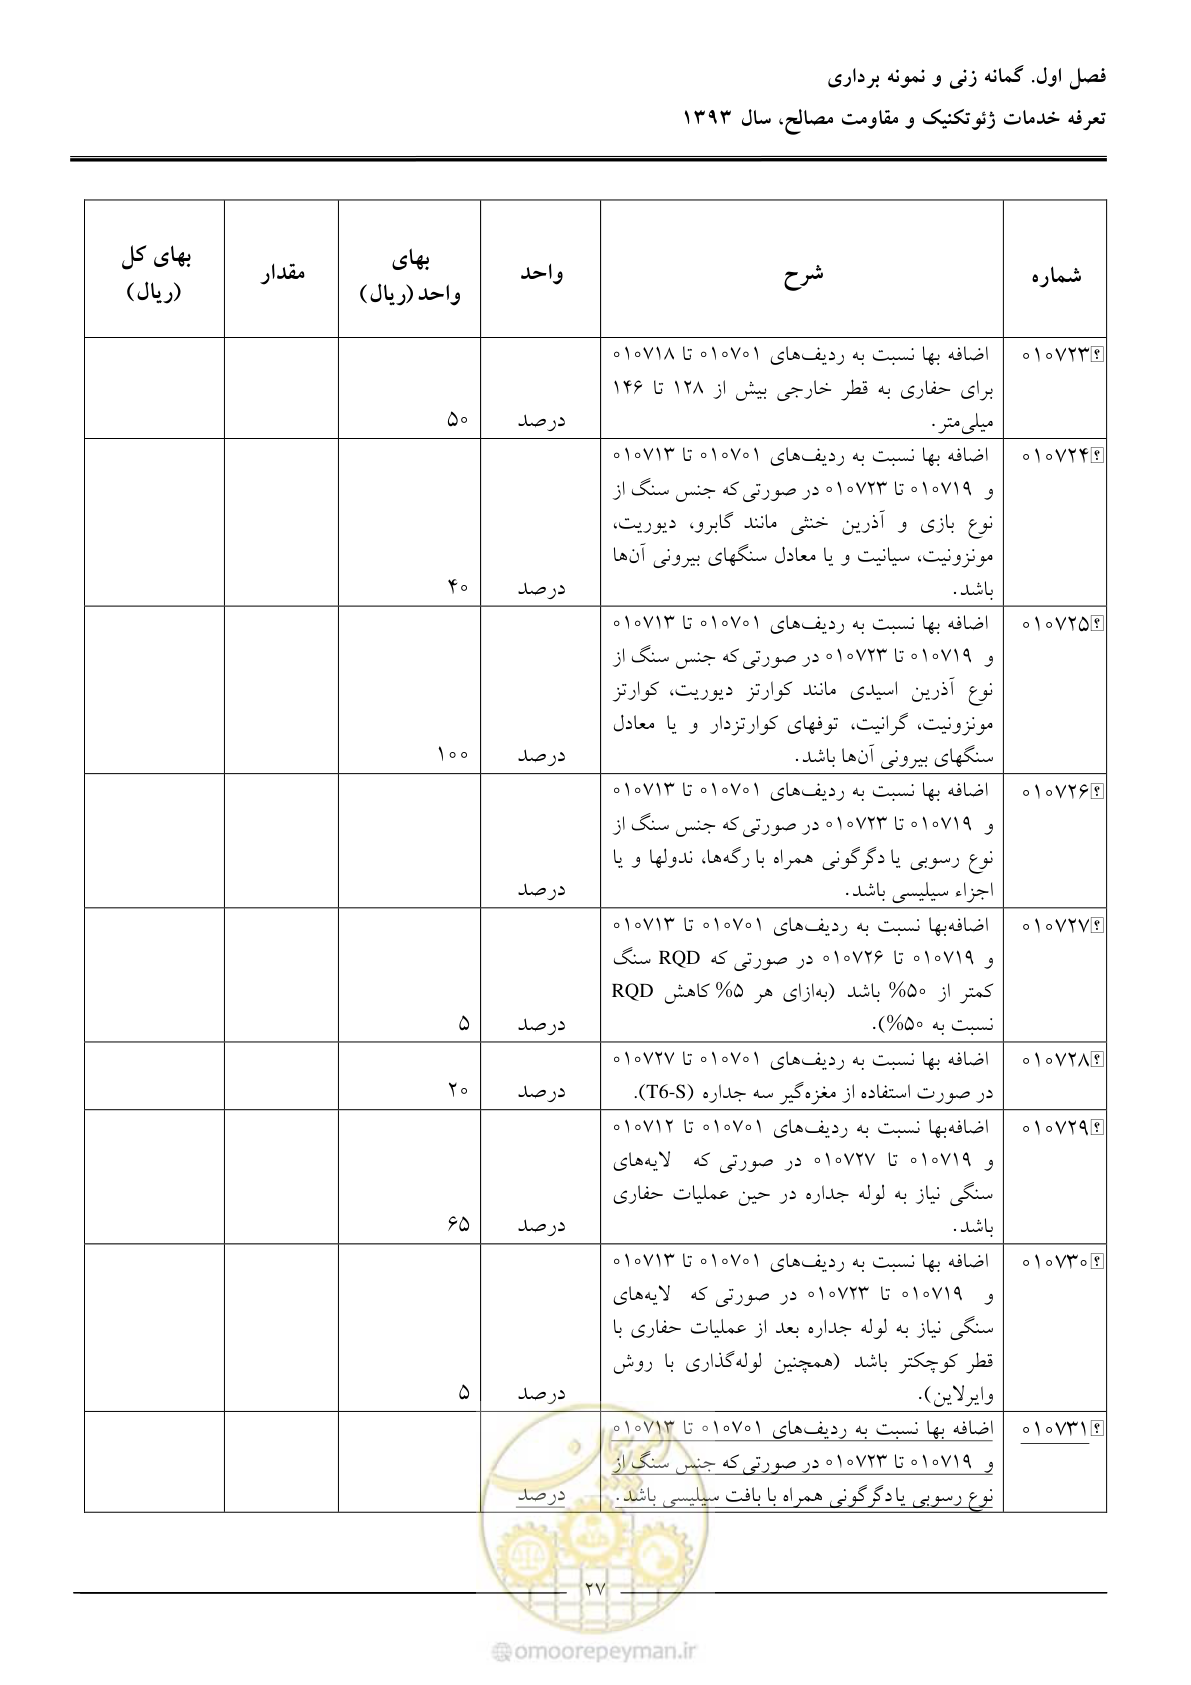 فصل اول. گمانه زنی و نمونه برداری
تعرفه خدمات ژئوتکنیک و مقاومت مصالح، سال ۱۳۹۳
شماره شرح واحد بهای واحد (ریال) مقدار بهای کل (ریال)
۰۱۰۷۲۳ اضافه بها نسبت به ردیف‌های ۰۱۰۷۰۱ تا ۰۱۰۷۱۸
برای حفاری به قطر خارجی بیش از ۱۲۸ تا ۱۴۶
میلی‌متر. درصد ۵۰
۰۱۰۷۲۴ اضافه بها نسبت به ردیف‌های ۰۱۰۷۰۱ تا ۰۱۰۷۱۳
و ۰۱۰۷۱۹ تا ۰۱۰۷۲۳ در صورتی‌که جنس سنگ از
نوع بازی و آذرین خنثی مانند گابرو، دیوریت،
مونزونیت، سیانیت و یا معادل سنگهای بیرونی آن‌ها
باشد. درصد ۴۰
۰۱۰۷۲۵ اضافه بها نسبت به ردیف‌های ۰۱۰۷۰۱ تا ۰۱۰۷۱۳
و ۰۱۰۷۱۹ تا ۰۱۰۷۲۳ در صورتی‌که جنس سنگ از
نوع آذرین اسیدی مانند کوارتز دیوریت، کوارتز
مونزونیت، گرانیت، توفهای کوارتزدار و یا معادل
سنگهای بیرونی آن‌ها باشد. درصد ۱۰۰
۰۱۰۷۲۶ اضافه بها نسبت به ردیف‌های ۰۱۰۷۰۱ تا ۰۱۰۷۱۳
و ۰۱۰۷۱۹ تا ۰۱۰۷۲۳ در صورتی‌که جنس سنگ از
نوع رسوبی یا دگرگونی همراه با رگه‌ها، ندولها و یا
اجزاء سیلیسی باشد. درصد
۰۱۰۷۲۷ اضافه‌بها نسبت به ردیف‌های ۰۱۰۷۰۱ تا ۰۱۰۷۱۳
و ۰۱۰۷۱۹ تا ۰۱۰۷۲۶ در صورتی‌که RQD سنگ
کمتر از ۵۰% باشد (به‌ازای هر ۵% کاهش RQD
نسبت به ۵۰%). درصد ۵
۰۱۰۷۲۸ اضافه بها نسبت به ردیف‌های ۰۱۰۷۰۱ تا ۰۱۰۷۲۷
در صورت استفاده از مغزه‌گیر سه جداره (T6-S). درصد ۲۰
۰۱۰۷۲۹ اضافه‌بها نسبت به ردیف‌های ۰۱۰۷۰۱ تا ۰۱۰۷۱۲
و ۰۱۰۷۱۹ تا ۰۱۰۷۲۷ در صورتی که لایه‌های
سنگی نیاز به لوله جداره در حین عملیات حفاری
باشد. درصد ۶۵
۰۱۰۷۳۰ اضافه بها نسبت به ردیف‌های ۰۱۰۷۰۱ تا ۰۱۰۷۱۳
و ۰۱۰۷۱۹ تا ۰۱۰۷۲۳ در صورتی که لایه‌های
سنگی نیاز به لوله جداره بعد از عملیات حفاری با
قطر کوچکتر باشد (همچنین لوله‌گذاری با روش
وایرلاین). درصد ۵
۰۱۰۷۳۱ اضافه بها نسبت به ردیف‌های ۰۱۰۷۰۱ تا ۰۱۰۷۱۳
و ۰۱۰۷۱۹ تا ۰۱۰۷۲۳ در صورتی‌که جنس سنگ از
نوع رسوبی یا دگرگونی همراه با بافت سیلیسی باشد. درصد
۲۷
@omoorepeyman.ir